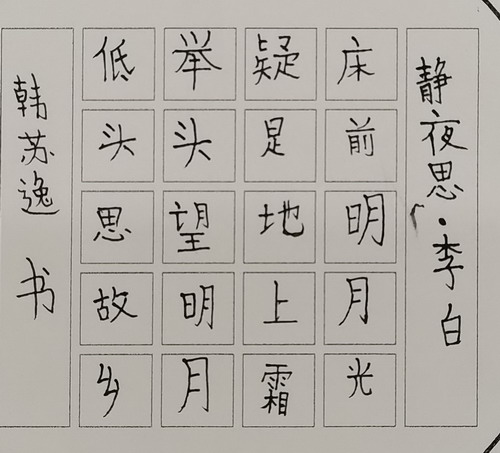 静夜思·李白
床前明月光
疑足地上霜
举头望明月
低头思故乡
韩苏逸 书